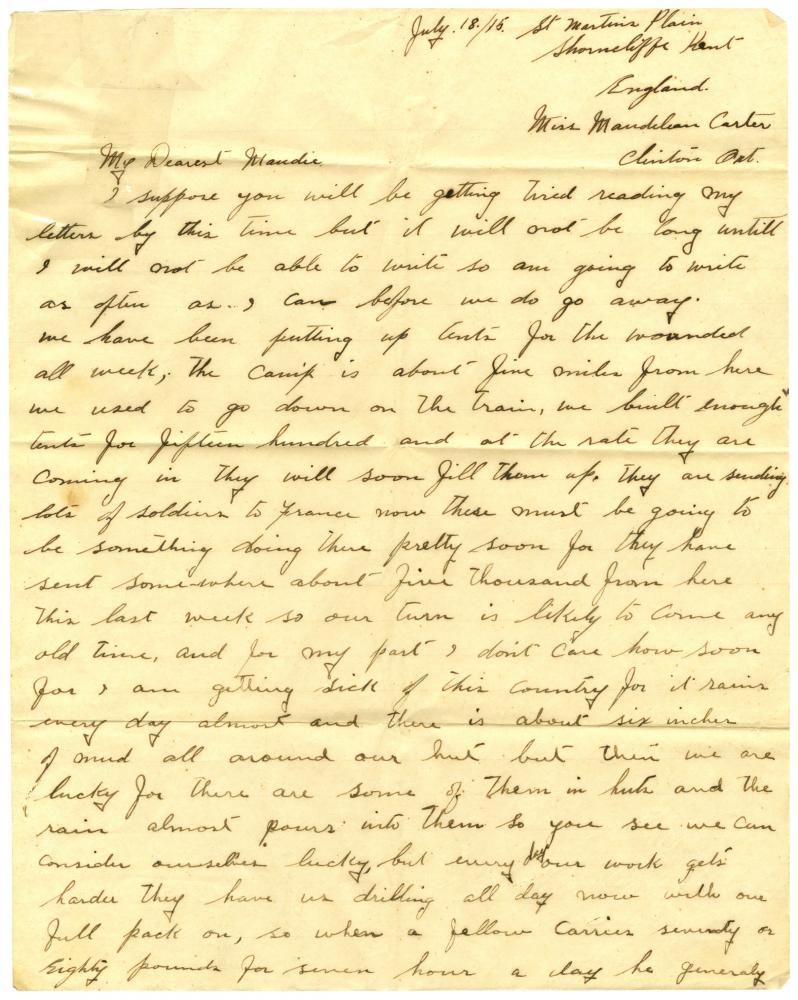 July. 18./15. St Martins Plain
Shorncliffe Kent
England.
Miss Maudelean Carter
Clinton Ont.
My Dearest Maudie
I suppose you will be getting tired reading my
letters by this time but it will not be long untill
I will not be able to write so am going to write
as often as I can before we do go away.
we have been putting up tents for the wounded
all week, the camp is about five miles from here
we used to go down on the train, we built enough
tents for fifteen hundred and at the rate they are
coming in they will soon fill them up. they are sending
lots of soldiers to France now there must be going to
be something doing there pretty soon for they have
sent some-where about five thousand from here
this last week so our turn is likely to come any
old time, and for my part I don't care how soon
for I am getting sick of this country for it rains
every day almost and there is about six inches
of mud all around our hut but then we are
lucky for there are some of them in huts and the
rain almost pours into them so you see we can
consider ourselves lucky, but every day our work gets
harder they have us drilling all day now with our
full pack on, so when a fellow carries seventy or
Eighty pounds for seven hour a day he generaly